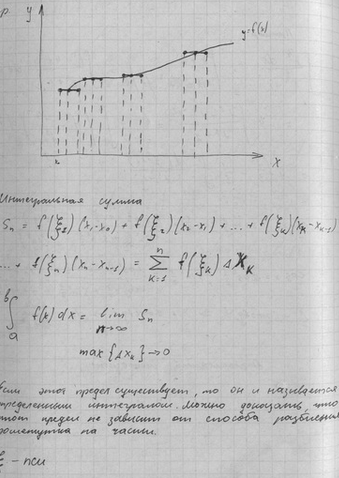 y
y=f(x)
x
Интегральная сумма
Sₙ = f(ξ₁)(x₁-x₀) + f(ξ₂)(x₂-x₁) + ... + f(ξₖ)(xₖ-xₖ₋₁)
... + f(ξₙ)(xₙ-xₙ₋₁) = ∑ₖ₌₁ⁿ f(ξₖ) Δ Xₖ
∫ₐᵇ f(x) dx = lim Sₙ
n→∞
max {Δxₖ}→0
Если этот предел существует, то он и называется
определенным интегралом. Можно доказать, что
этот предел не зависит от способа разбиения
промежутка на части.
ξ - пси